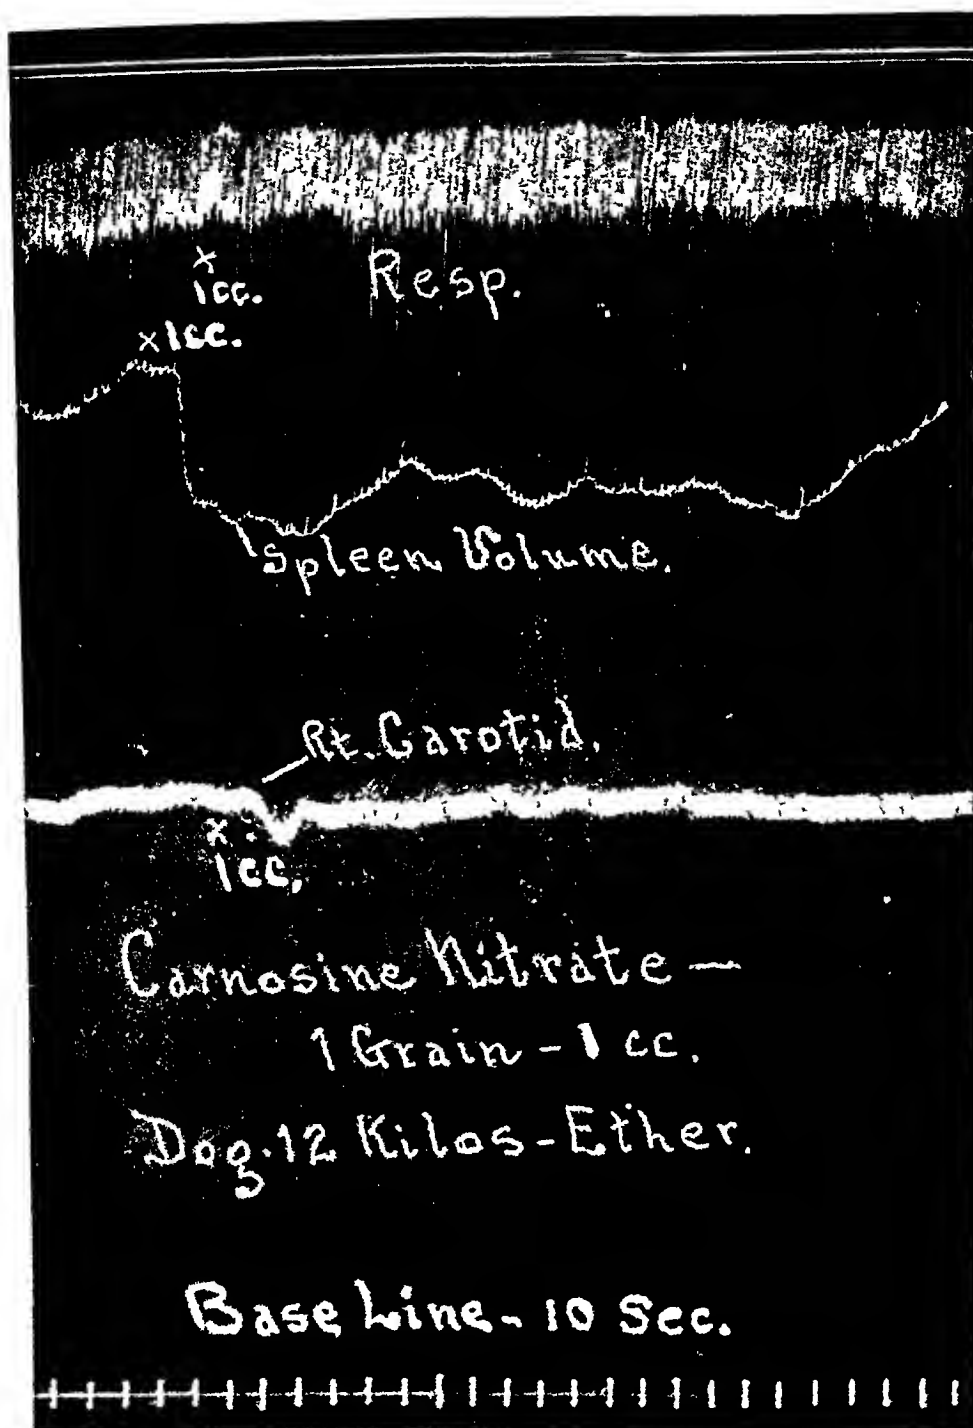 x
1cc.
Resp.
x 1cc.
Spleen Volume.
Rt. Carotid.
x
1cc.
Carnosine Nitrate —
1 Grain - 1 cc.
Dog. 12 Kilos - Ether.
Base Line - 10 Sec.